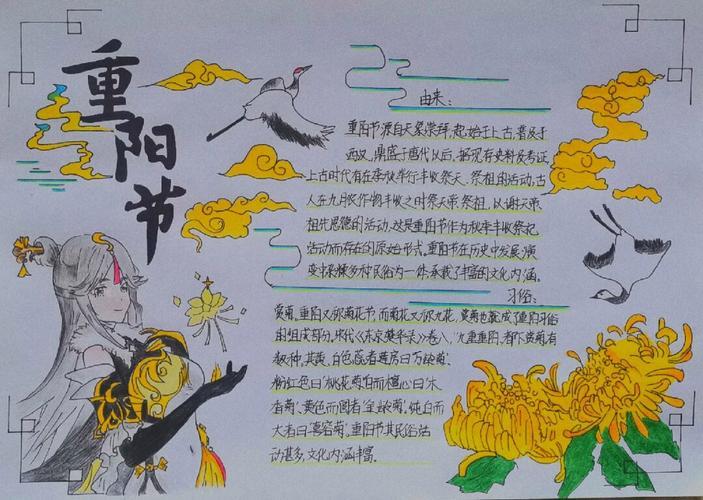 重阳节
由来:
重阳节源自天象崇拜,起始于上古,普及于
西汉,鼎盛于唐代以后。据现存史料及考证,
上古时代有在季秋举行丰收祭天、祭祖的活动,古
人在九月农作物丰收之时祭天帝、祭祖,以谢天帝、
祖先恩德的活动,这是重阳节作为秋季丰收祭祀
活动而存在的原始形式。重阳节在历史中发展演
变中杂糅多种民俗为一体,承载了丰富的文化内涵。
习俗:
赏菊。重阳又称菊花节,而菊花又称九花,赏菊也就成了重阳习俗
的组成部分。宋代《东京梦华录》卷八:"九重重阳,都下赏菊有
数种,其黄、白色蕊者莲房曰'万铃菊',
粉红色曰'桃花菊',白而檀心曰'木
香菊',黄色而圆者'金铃菊',纯白而
大者曰'喜容菊'。重阳节其民俗活
动甚多,文化内涵丰富。